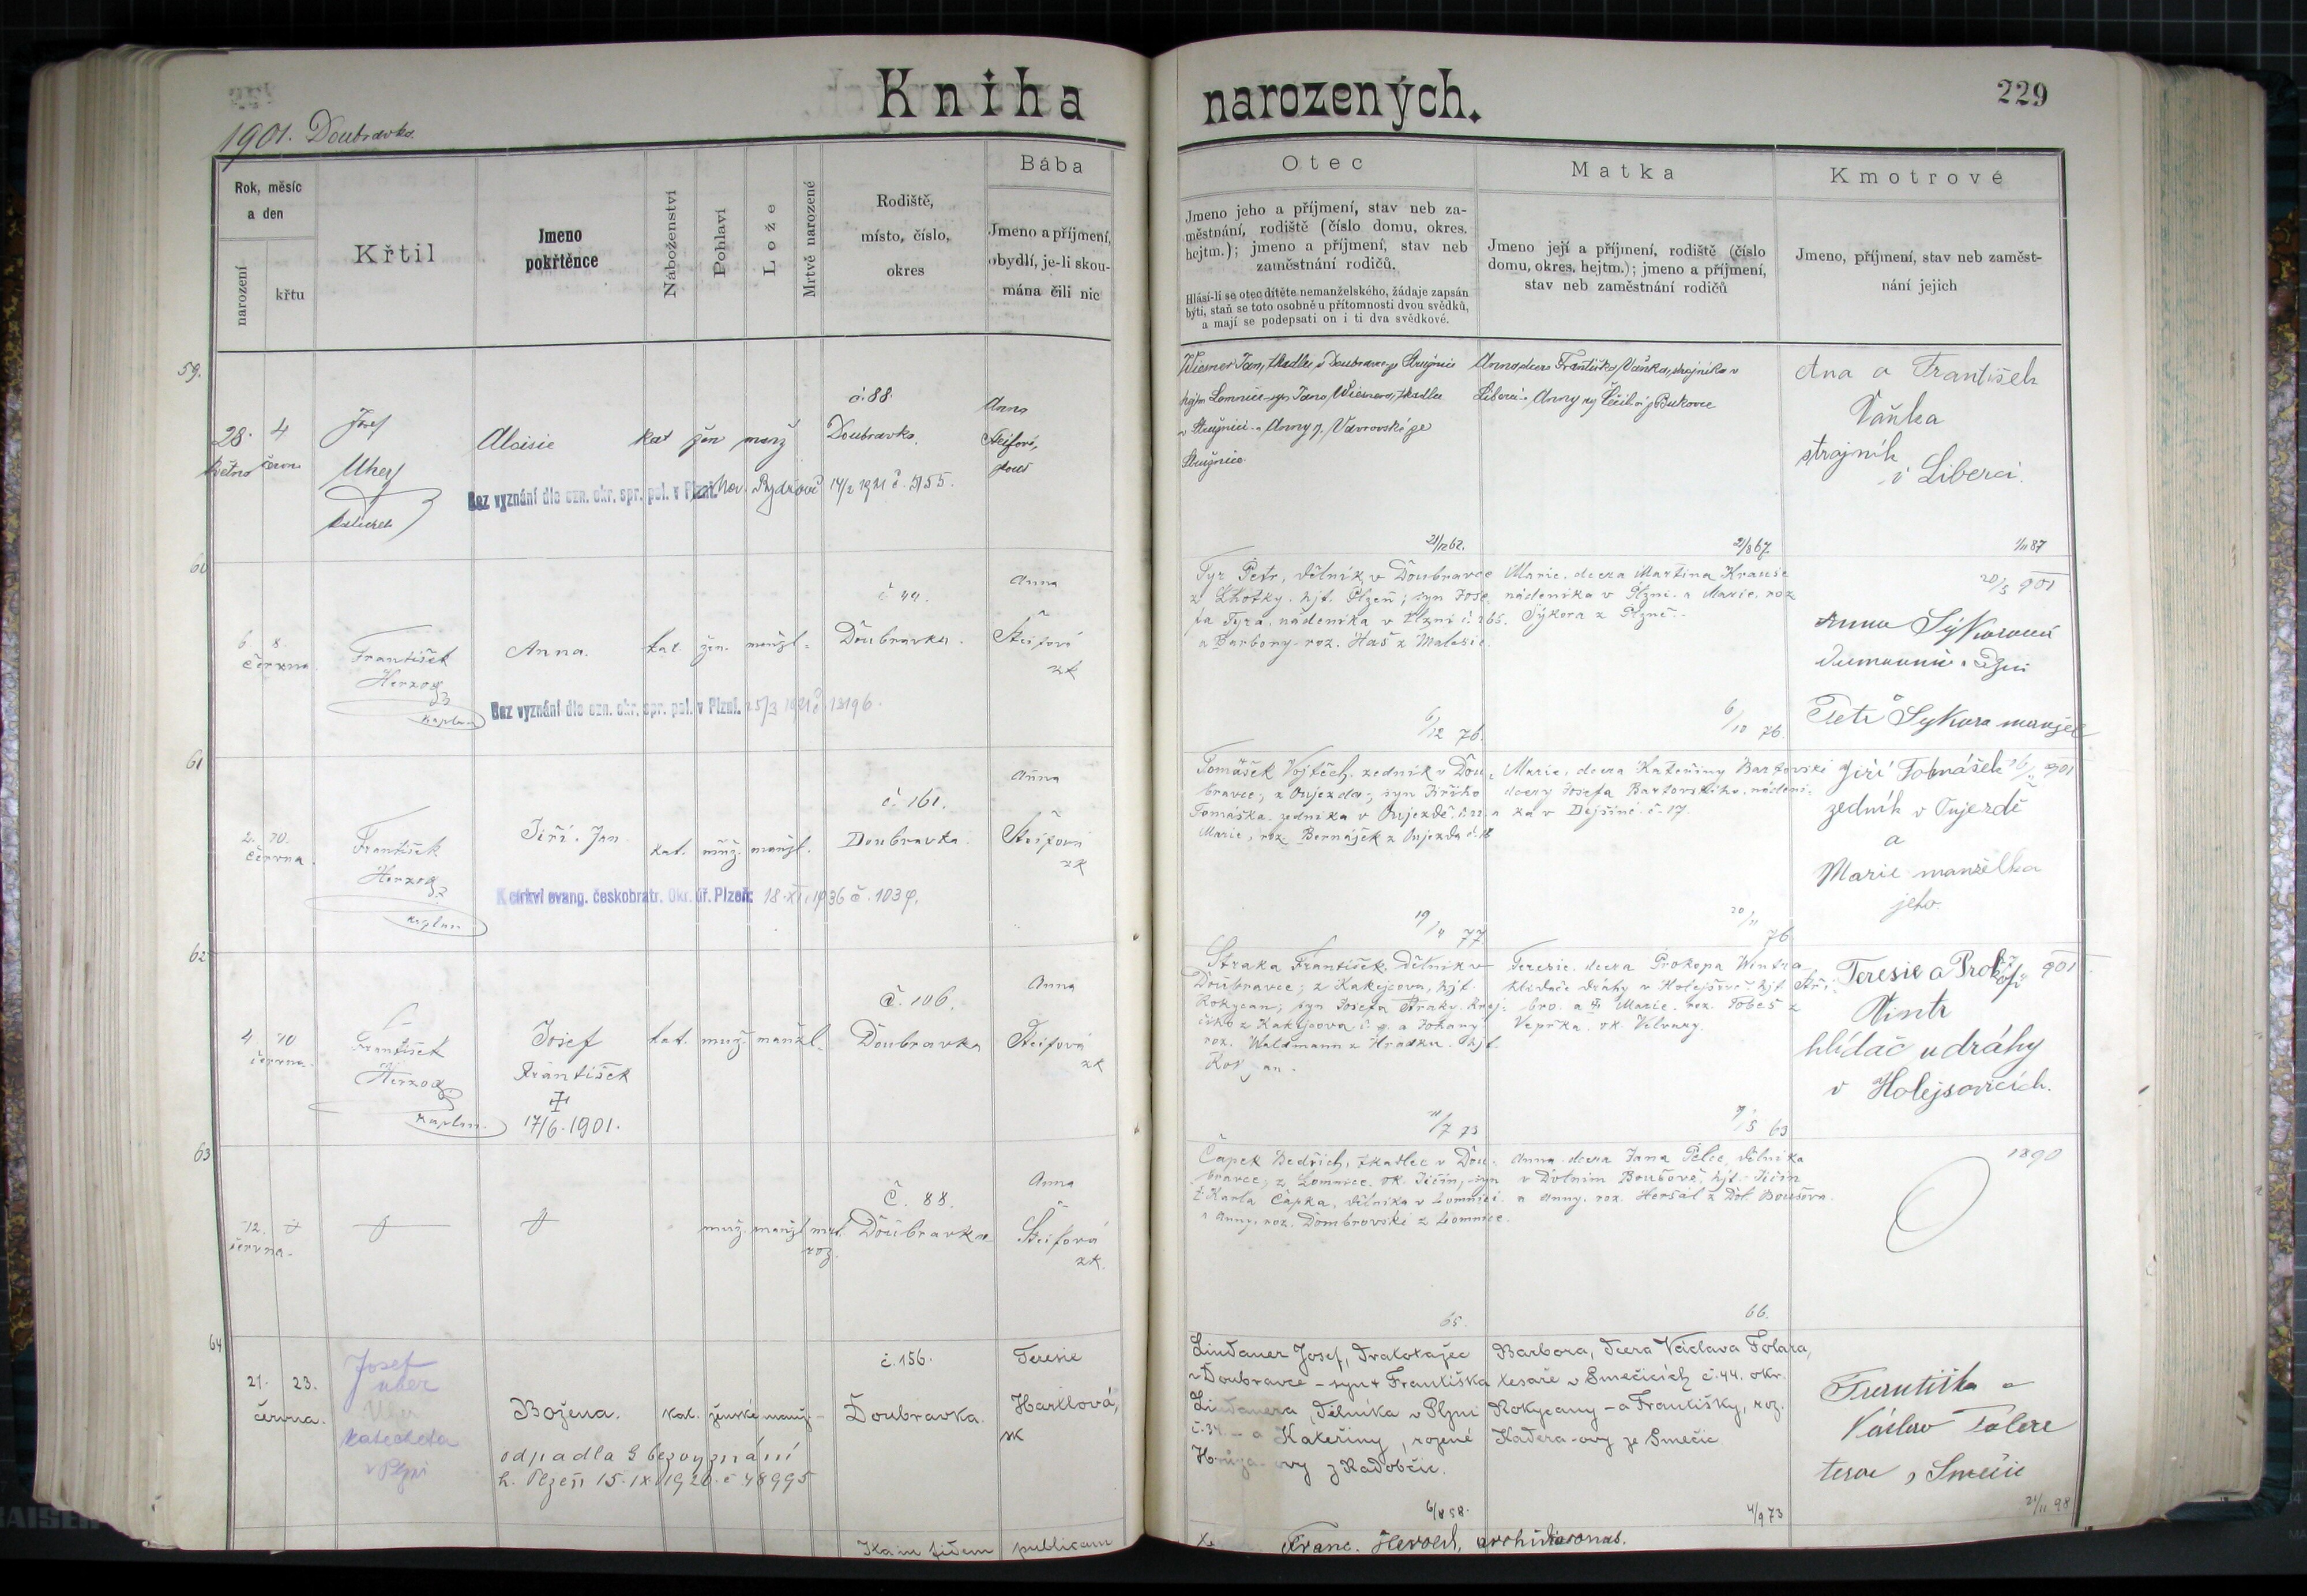 Kniha narozených.
229
1901. Doubravka.
Rok, měsíc
a den
narození
křtu
Křtil
Jmeno
pokřtěnce
Náboženství
Pohlaví
Lože
Mrtvě narozené
Rodiště,
místo, číslo,
okres
Bába
Jmeno a příjmení,
obydlí, je-li skou-
mána čili nic
Otec
Jmeno jeho a příjmení, stav neb za-
městnání, rodiště (číslo domu, okres.
hejtm.); jmeno a příjmení, stav neb
zaměstnání rodičů.
Hlásí-li se otec dítěte nemanželského, žádaje zapsán
býti, staň se toto osobně u přítomnosti dvou svědků,
a mají se podepsati on i ti dva svědkové.
Matka
Jmeno její a příjmení, rodiště (číslo
domu, okres. hejtm.); jmeno a příjmení,
stav neb zaměstnání rodičů
Kmotrové
Jmeno, příjmení, stav neb zaměst-
nání jejich
59.
28. 4
května června
Josef
Uher
katecheta
Aloisie
kat žen manž
č. 88.
Doubravka.
Anna
Steifová,
Bez vyznání dle ozn. okr. spr. pol. v Plzni. 14/2 1921 č. 5155.
Wiesner Jan, tkadlec v Doubravce ze Stružnice
hejtm Lomnice syn Jana Wiesnera, tkadlce
v Stružnici a Anny r. Vavrovské ze
Stružnice
21/12 62.
Anna dcera Františka Vaňka, strojníka v
Liberci a Anny
z Bukovce
21/8 67
Ana a František
Vaňka
strojník
v Liberci.
1/11 87
60
6. 8.
června.
František
Herzog
kaplan
Anna.
kat. žen. manžl.
č 44.
Doubravka.
Anna
Šteifová
zk
Bez vyznání dle ozn. okr. spr. pol. v Plzni. 25/3 1921 č. 13196.
Tyr Petr, dělník v Doubravce
z Lhotky. hjt. Plzeň; syn Jose
fa Tyra, nádeníka v Plzni č. 265.
a Barbory roz. Haš z Malesic.
6/12 76.
Marie, dcera Martina Krause
nádeníka v Plzni. a Marie. roz
Sýkora z Plzně.
6/10 76.
20/5 901
Anna Sýkorová
Petr Sýkora manžel
61
2. 10.
června.
František
Herzog
kaplan.
Jiří. Jan
kat. muž. manžl.
č. 161.
Doubravka.
Anna
Šteifová
zk
K církvi evang. českobratr. Okr. úř. Plzeň: 18. XI. 1936 č. 1039.
Tomášek Vojtěch. zedník v Dou-
bravce; z Oujezda; syn Jiřího
Tomáška. zedníka v Oujezdě. č. 22 a
Marie, roz. Bernášek z Oujezda č. 18
19/4 77
Marie, dcera Kateřiny Bartovské
dcery Josefa Bartovského. nádení-
ka v Dejšině. č. 17.
20/11 76
Jiří Tomášek 901
zedník v Oujezdě
a
Marie manželka
jeho.
62
4 10
června.
František
Herzog
kaplan.
Josef
František
17/6. 1901.
kat. muž. manžl.
č. 106.
Doubravka
Anna
Šteifová
zk
Straka František. dělník v
Doubravce; z Kakejcova, hjt.
Rokycan; syn Josefa Straky. krej-
čího z Kakejcova č. 9. a Johany
roz. Waldmann z Hrádku. hjt.
11/7 73
Teresie. dcera Prokopa Wintra
hlídače dráhy v Holejšově hjt Stří-
bro. a Marie. roz. Tobeš z
Vepřka. ok. Velvary.
7/5 63
Teresie a Prokop 901
Vintr
hlídač u dráhy
v Holejšovicích.
63
12.
června.
muž. manžl mrt.
roz.
Č. 88.
Doubravka
Anna
Šteifová
zk.
Čapek Bedřich, tkadlec v Dou-
bravce; z Lomnice. ok. Jičín, syn
Karla Čapka, dělníka v Lomnici
a Anny, roz. Dombrovské z Lomnice.
65.
Anna dcera Jana Pelce, dělníka
v Dolním Bousově, hjt. Jičín
a Anny. roz. Heršál z Dol. Bousova.
66.
1890
64
21. 23.
června.
Josef
Uher
Uher
katecheta
v Plzni
Božena.
kat. ženské manž. -
č. 156.
Doubravka.
Teresie
Hartlová,
zk
odpadla bezvyznání
h. Plzeň 15. IX. 1920. č 48995
Lindauer Josef, Dratotažec
v Doubravce - syn Františka
Lindauera, dělníka v Plzni
č. 34. - a Kateřiny, rozené
z Radobčic.
6/8 58.
Barbora, dcera Václava Tolara,
tesaře v Smečicích č. 44. okr.
Rokycany - a Františky, roz.
Kadera-ovy ze Smečic
4/9 73
Františka a
Václav Tolar
tesař z Smečic
21/11 98
fidem publicam
Franc. Herold, archidiaconus.